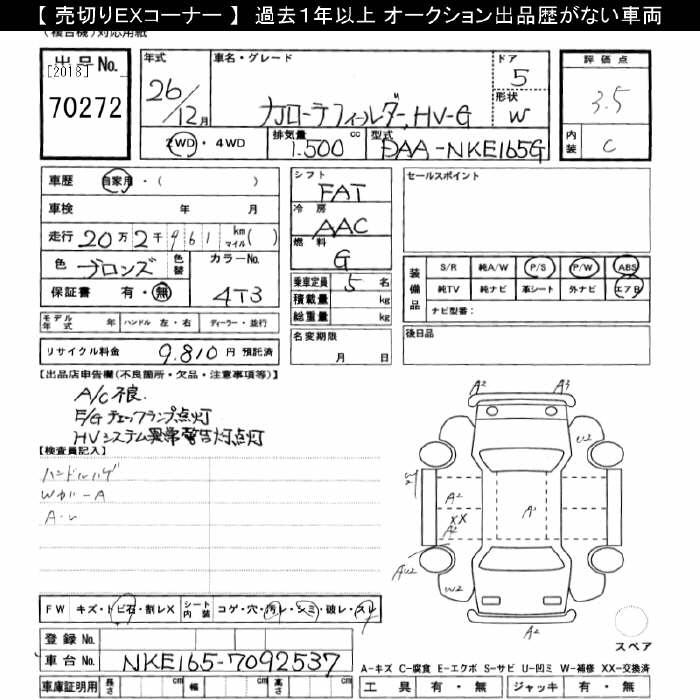 【 売切りEXコーナー 】 過去1年以上 オークション出品歴がない車両
(複合機)対応用紙
出品No.
[2018]
70272
年式
26/12月
車名・グレード
カローラフィールダー、HV-G
ドア
5
形状
W
2WD・4WD
排気量
cc
1.500
型式
DAA-NKE165G
評価点
3.5
内装
C
車歴 自家用・( )
車検 年 月
走行 20万2千961 km マイル( )
色 ブロンズ 色替 カラーNo.
4T3
保証書 有・無
シフト
FAT
冷房
AAC
燃料
G
乗車定員 5 名
積載量 kg
総重量 kg
セールスポイント
装備品
S/R 純A/W P/S P/W ABS
純TV 純ナビ 革シート 外ナビ エアB
ナビ型番:
モデル年式 年 ハンドル 左・右 ディーラー・並行
リサイクル料金 9.810 円 預託済
名変期限
月 日
後日品
【出品店申告欄(不良箇所・欠品・注意事項等)】
A/C不良.
E/Gチェックランプ点灯
HVシステム異常警告灯点灯
【検査員記入】
ハンドルハゲ
Wガバ-A
A・レ
A2 A3
U2
W2
A2
XX
A2
A1
AU2
W2
A2
スペア
FW キズ・トビ石・割レX シート内装 コゲ・穴・汚レ・シミ・破レ・スレ
登録No.
車台No. NKE165-7092537
A-キズ C-腐食 E-エクボ S-サビ U-凹ミ W-補修 XX-交換済
車庫証明用 長さ cm 幅 cm 高さ cm
工具 有・無 ジャッキ 有・無